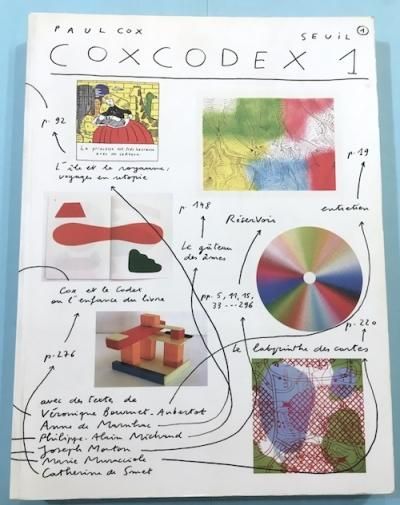 PAUL COX
SEUIL
1
COXCODEX 1
p. 92
La princesse est très heureuse
avec un cadeau.
L'île et le royaume:
voyages en utopie
p. 19
entretien
p. 148
Le gâteau
des âmes
Réservoir
pp. 5, 11, 15,
33 ... 296
Cox et le Codex
ou l'enfance du livre
p. 276
p. 220
Le labyrinthe des cartes
avec des textes de
Véronique Bouruet-Aubertot
Anne de Marnhac
Philippe-Alain Michaud
Joseph Morton
Marie Muracciole
Catherine de Smet